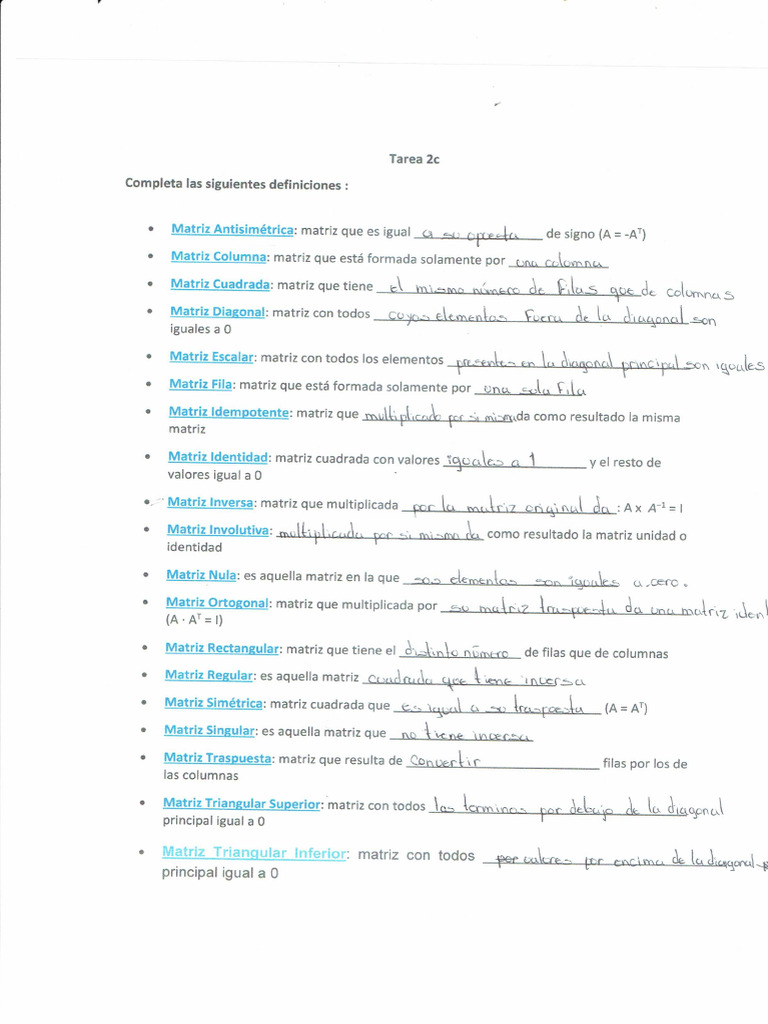 Tarea 2c
Completa las siguientes definiciones :
• Matriz Antisimétrica: matriz que es igual a su opuesta de signo (A = -Aᵀ)
• Matriz Columna: matriz que está formada solamente por una columna
• Matriz Cuadrada: matriz que tiene el mismo número de filas que de columnas
• Matriz Diagonal: matriz con todos cuyos elementos fuera de la diagonal son
iguales a 0
• Matriz Escalar: matriz con todos los elementos presentes en la diagonal principal son iguales
• Matriz Fila: matriz que está formada solamente por una sola fila
• Matriz Idempotente: matriz que multiplicado por si misma da como resultado la misma
matriz
• Matriz Identidad: matriz cuadrada con valores iguales a 1 y el resto de
valores igual a 0
• Matriz Inversa: matriz que multiplicada por la matriz original da : A x A⁻¹ = I
• Matriz Involutiva: multiplicada por si misma da como resultado la matriz unidad o
identidad
• Matriz Nula: es aquella matriz en la que sos elementos son iguales a cero.
• Matriz Ortogonal: matriz que multiplicada por su matriz traspuesta da una matriz ident
(A · Aᵀ = I)
• Matriz Rectangular: matriz que tiene el distinto número de filas que de columnas
• Matriz Regular: es aquella matriz cuadrada que tiene inversa
• Matriz Simétrica: matriz cuadrada que es igual a su traspuesta (A = Aᵀ)
• Matriz Singular: es aquella matriz que no tiene inversa
• Matriz Traspuesta: matriz que resulta de convertir filas por los de
las columnas
• Matriz Triangular Superior: matriz con todos los terminos por debajo de la diagonal
principal igual a 0
• Matriz Triangular Inferior: matriz con todos valores por encima de la diagonal
principal igual a 0